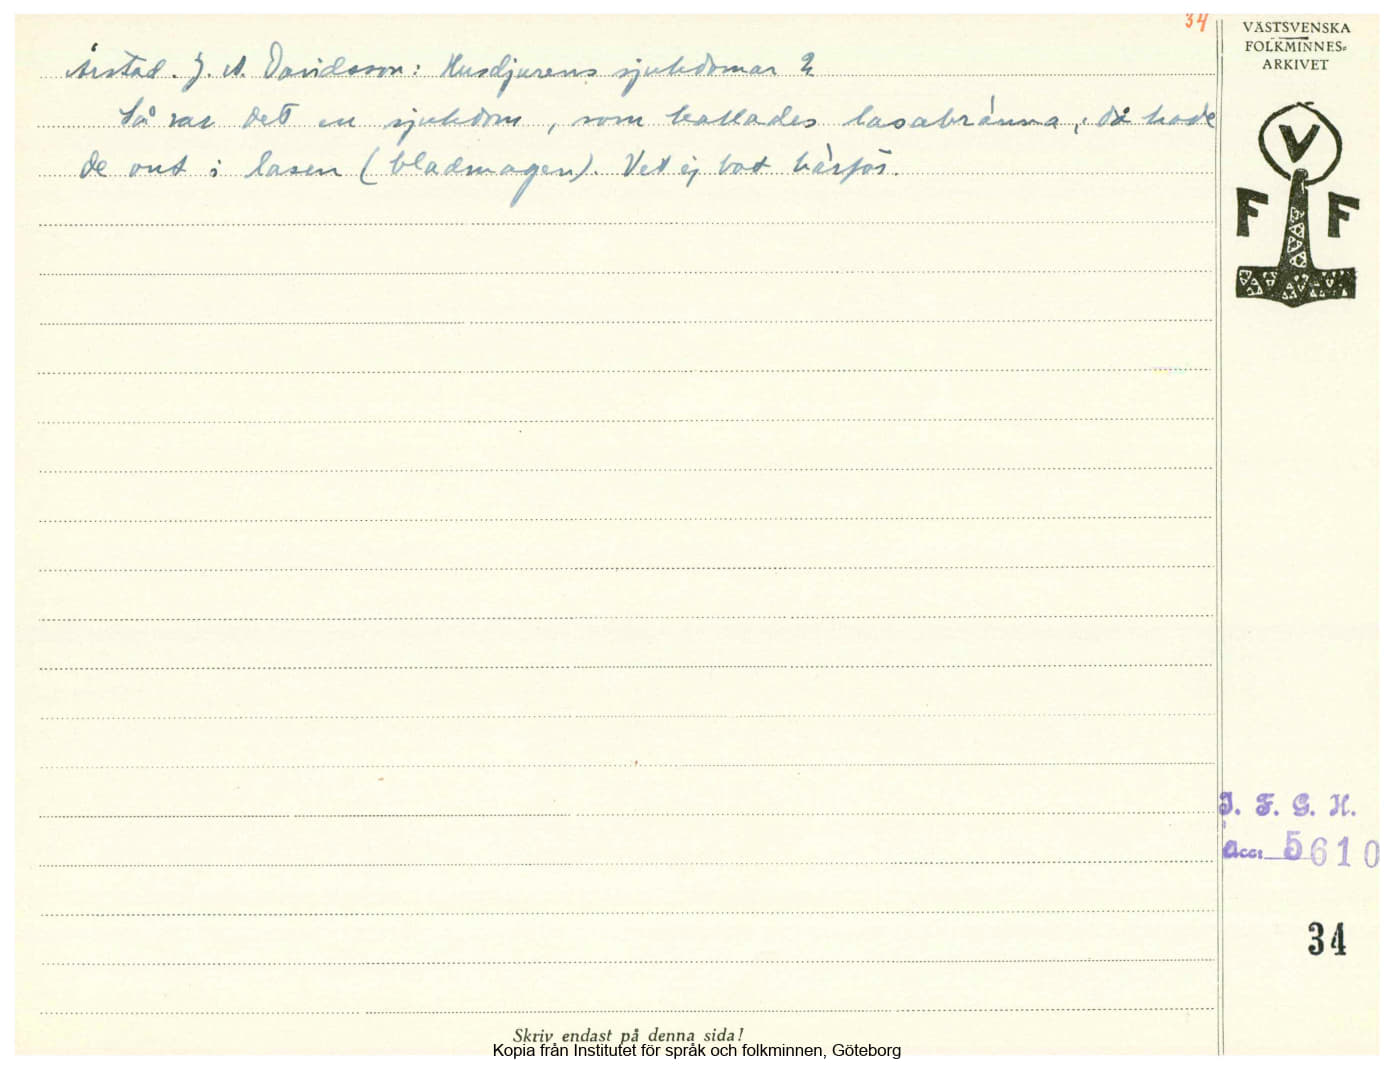 34
VÄSTSVENSKA
FOLKMINNES-
ARKIVET
Årstad. J. A. Davidsson: Husdjurens sjukdomar 2
Så var det en sjukdom, som kallades lasabränna, då hade
de ont i lasen (bladmagen). Vet ej bot härför.
V
F F
I. F. G. H.
Acc: 5610
34
Skriv endast på denna sida!
Kopia från Institutet för språk och folkminnen, Göteborg